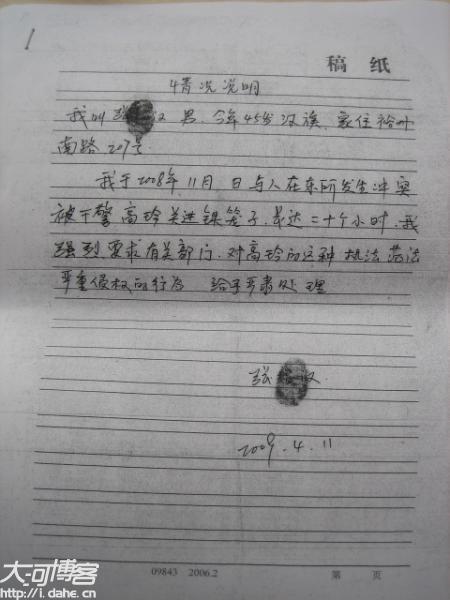 1
稿 纸
情况说明
我叫张 汉 男.今年45岁汉族.家住裕州
南路207号
我于2008年11月 日与人在东所发生冲突
被干警高玲关进铁笼子.长达二十个小时.我
强烈要求有关部门.对高玲的这种执法违法
严重侵权的行为 给予严肃处理
张 汉
2009.4.11
09843 2006.2 第 页
大河博客
http://i.dahe.cn